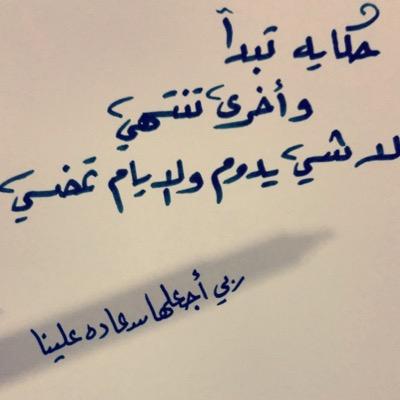 حكايه تبدأ
وأخرى تنتهي
لا شي يدوم ولايام تمضي
ربي أجعلها سعاده علينا